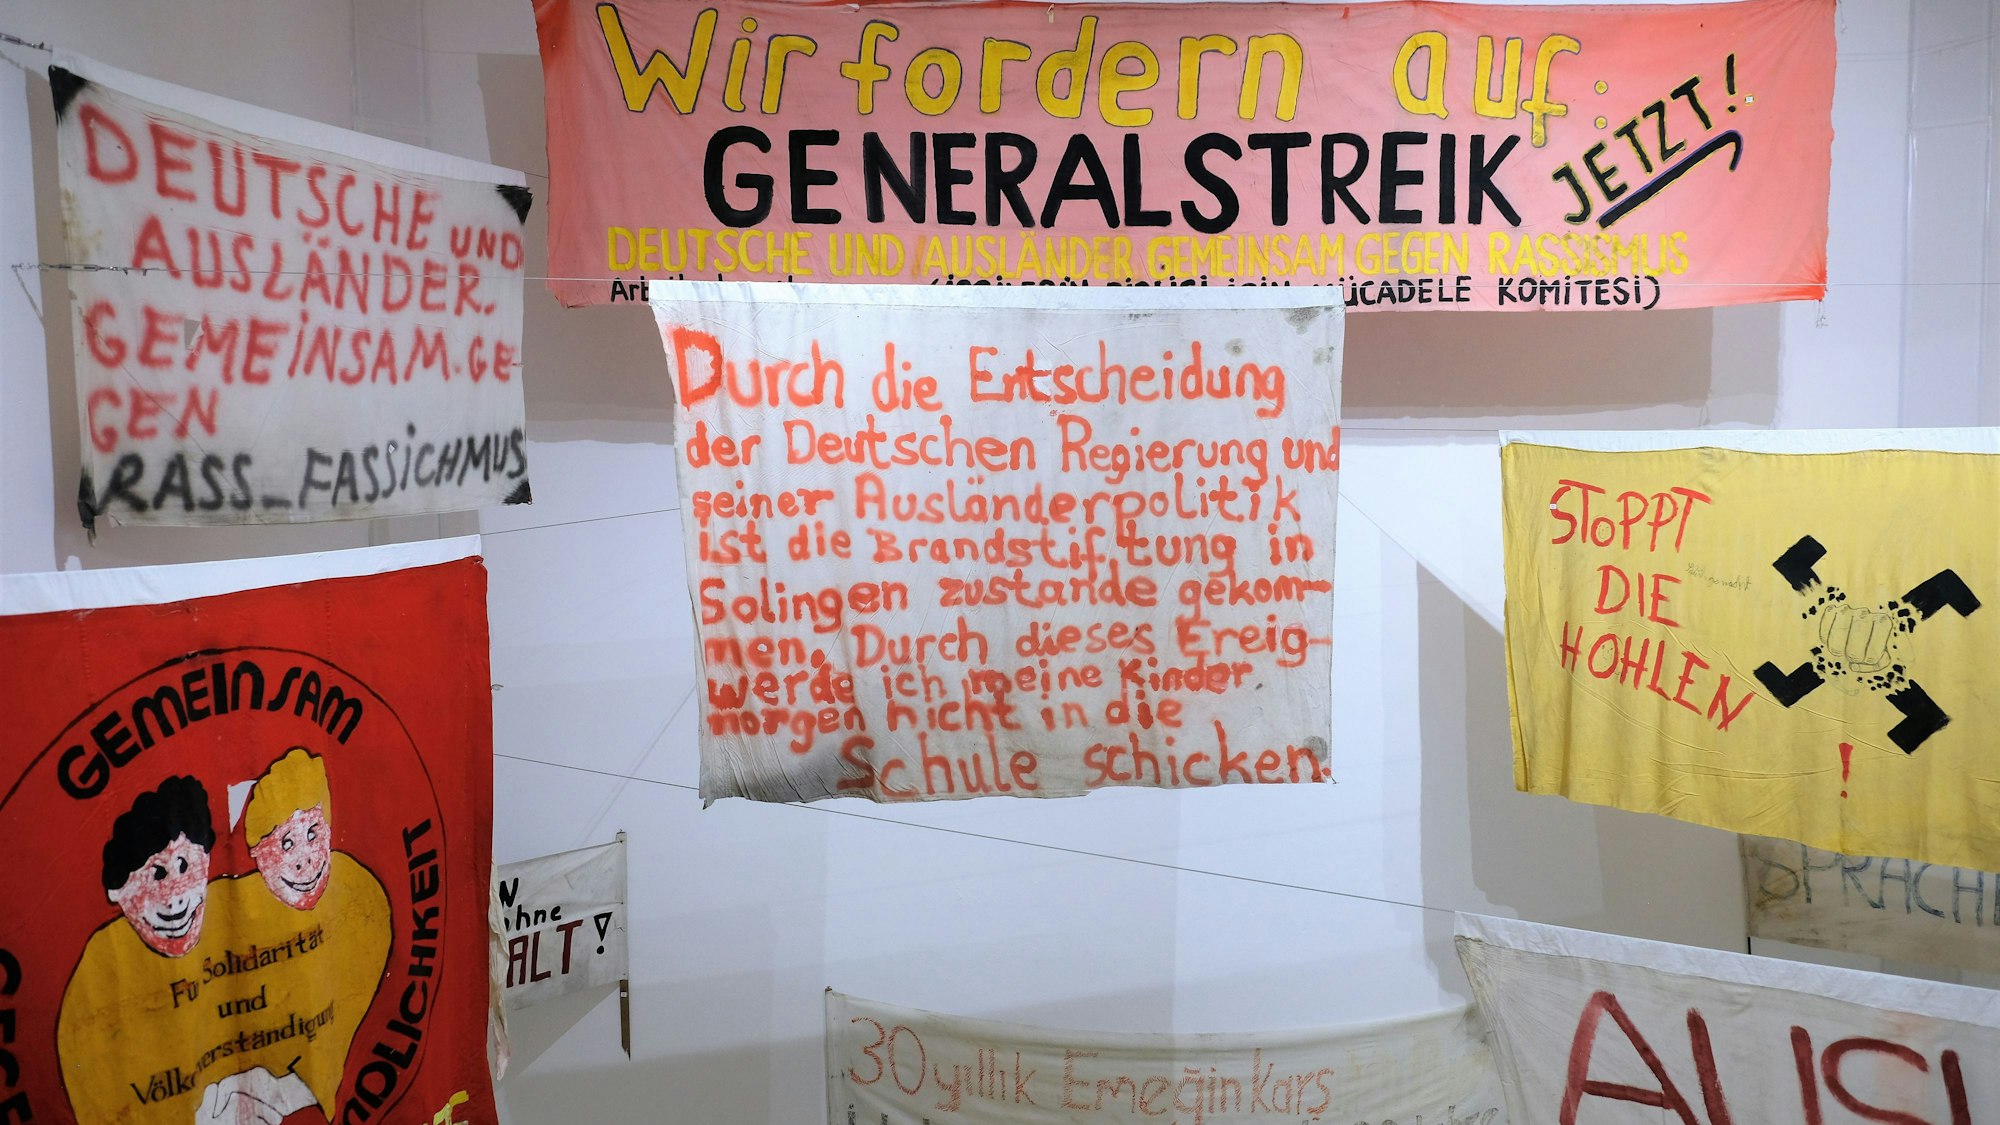 Wir fordern auf:
GENERALSTREIK JETZT!
DEUTSCHE UND AUSLÄNDER GEMEINSAM GEGEN RASSISMUS
MÜCADELE KOMİTESİ)
DEUTSCHE UND
AUSLÄNDER.
GEMEINSAM.GE-
GEN
RASS_FASSiCHMUS
Durch die Entscheidung
der Deutschen Regierung und
seiner Ausländerpolitik
ist die Brandstiftung in
Solingen zustande gekom-
men. Durch dieses Ereig-
werde ich meine Kinder
morgen nicht in die
Schule schicken.
STOPPT
DIE
HOHLEN
!
GEMEINSAM
Für Solidarität
und
Völkerverständigung
NDLICHKEIT
N
ohne
ALT!
SPRACH
30 yıllık Emeğin Kars
AUSL